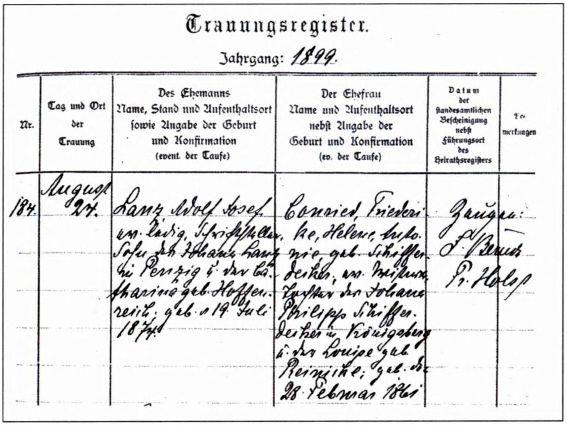 Trauungsregister.
Jahrgang: 1899.
Nr.
Tag und Ort
der
Trauung
Des Ehemanns
Name, Stand und Aufenthaltsort
sowie Angabe der Geburt
und Konfirmation
(event. der Taufe)
Der Ehefrau
Name und Aufenthaltsort
nebst Angabe der
Geburt und Konfirmation
(ev. der Taufe)
Datum
der
standesamtlichen
Bescheinigung
nebst
Führungsort
des
Heirathsregisters
Be-
merkungen
184.
August
24.
Lanz Adolf Josef
ev. ledig, Schriftsteller
Sohn des Johann Lanz
in Penzig u. der Ca-
tharina geb. Hoffen-
reich, geb. 19. Juli
1874.
Conried, Friederi-
ke, Helene, Anto-
nie geb. Schiffer-
decker, ev.
Tochter des Johann
Philipp Schiffer-
decker in Königsberg
u. der Louise geb.
Reinicke; geb. den
28. Februar 1861
Zeugen:
F.
Fr. Holst